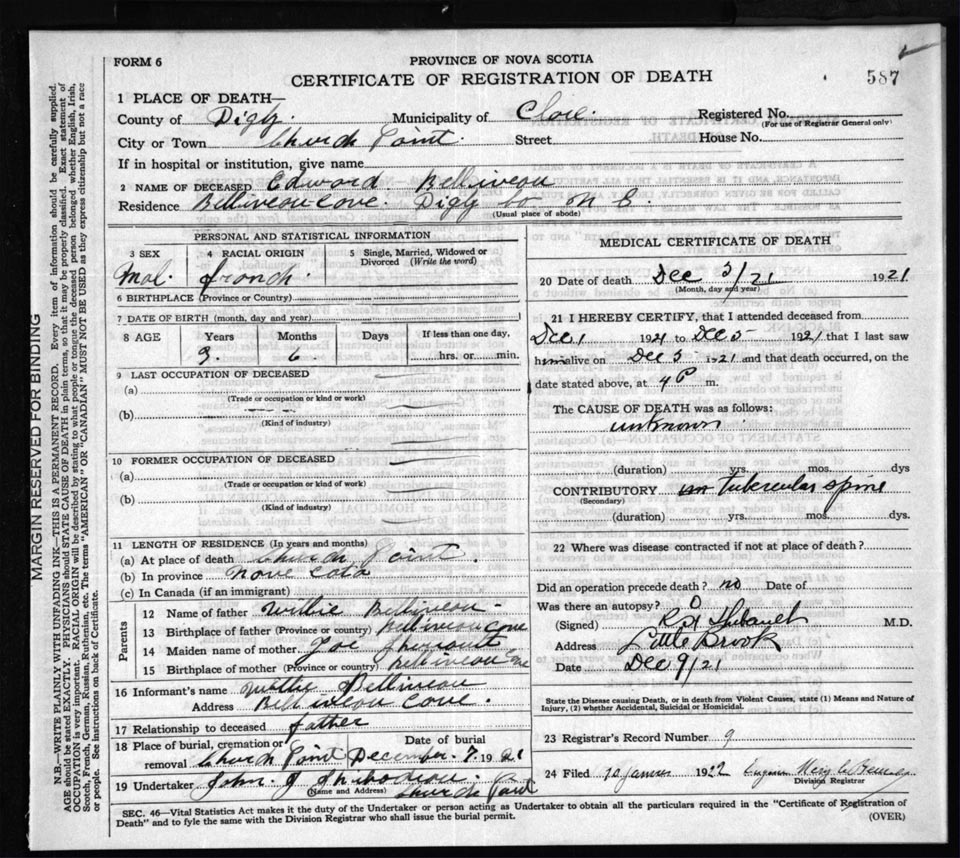 FORM 6
PROVINCE OF NOVA SCOTIA
CERTIFICATE OF REGISTRATION OF DEATH
587
1 PLACE OF DEATH—
County of Digby. Municipality of Clare. Registered No.
(For use of Registrar General only)
City or Town Church Point Street House No.
If in hospital or institution, give name
2 NAME OF DECEASED Edward Belliveau
Residence Belliveau Cove. Digby Co N S.
(Usual place of abode)
PERSONAL AND STATISTICAL INFORMATION
3 SEX 4 RACIAL ORIGIN 5 Single, Married, Widowed or Divorced (Write the word)
Mal. french.
6 BIRTHPLACE (Province or County)
7 DATE OF BIRTH (month, day and year)
8 AGE Years Months Days If less than one day,
9. 6 hrs. or min.
9 LAST OCCUPATION OF DECEASED
(a)
(Trade or occupation or kind or work)
(b)
(Kind of industry)
10 FORMER OCCUPATION OF DECEASED
(a)
(Trade or occupation or kind of work)
(b)
(Kind of industry)
11 LENGTH OF RESIDENCE (In years and months)
(a) At place of death Church Point
(b) In province Nova Cotia
(c) In Canada (if an immigrant)
Parents
12 Name of father Willie Belliveau
13 Birthplace of father (Province or country) Belliveau Cove
14 Maiden name of mother
15 Birthplace of mother (Province or country) Belliveau Cove
16 Informant's name Willie Belliveau
Address Belliveau Cove.
17 Relationship to deceased father
18 Place of burial, cremation or removal Church Point Date of burial December 7 1921
19 Undertaker John J
(Name and Address) Church Point
SEC. 46—Vital Statistics Act makes it the duty of the Undertaker or person acting as Undertaker to obtain all the particulars required in the "Certificate of Registration of
Death" and to fyle the same with the Division Registrar who shall issue the burial permit. (OVER)
MEDICAL CERTIFICATE OF DEATH
20 Date of death Dec 5/21 1921
(Month, day and year)
21 I HEREBY CERTIFY, that I attended deceased from
Dec 1 1921 to Dec 5 1921 that I last saw
him alive on Dec 5 1921 and that death occurred, on the
date stated above, at 4 P m.
The CAUSE OF DEATH was as follows:
unknown
(duration) yrs. mos. dys
CONTRIBUTORY Tubercular spine
(Secondary)
(duration) yrs. mos. dys.
22 Where was disease contracted if not at place of death?
Did an operation precede death? no Date of
Was there an autopsy? 0
(Signed) Thibault M.D.
Address Little Brook
Date Dec 9/21
State the Disease causing Death, or in death from Violent Causes, state (1) Means and Nature of
Injury, (2) whether Accidental, Suicidal or Homicidal.
23 Registrar's Record Number 9
24 Filed 10 1922
Division Registrar
MARGIN RESERVED FOR BINDING
N.B.—WRITE PLAINLY WITH UNFADING INK—THIS IS A PERMANENT RECORD. Every item of information should be carefully supplied.
AGE should be stated EXACTLY. PHYSICIANS should STATE CAUSE OF DEATH in plain terms, so that it may be properly classified. Exact statement of
OCCUPATION is very important. RACIAL ORIGIN will be described by stating to what people or tongue the deceased person belonged whether English, Irish,
Scotch, French, German, Russian, Ruthenian, etc. The terms "AMERICAN" OR "CANADIAN" MUST NOT BE USED as they express citizenship but not a race
or people. See instructions on back of Certificate.